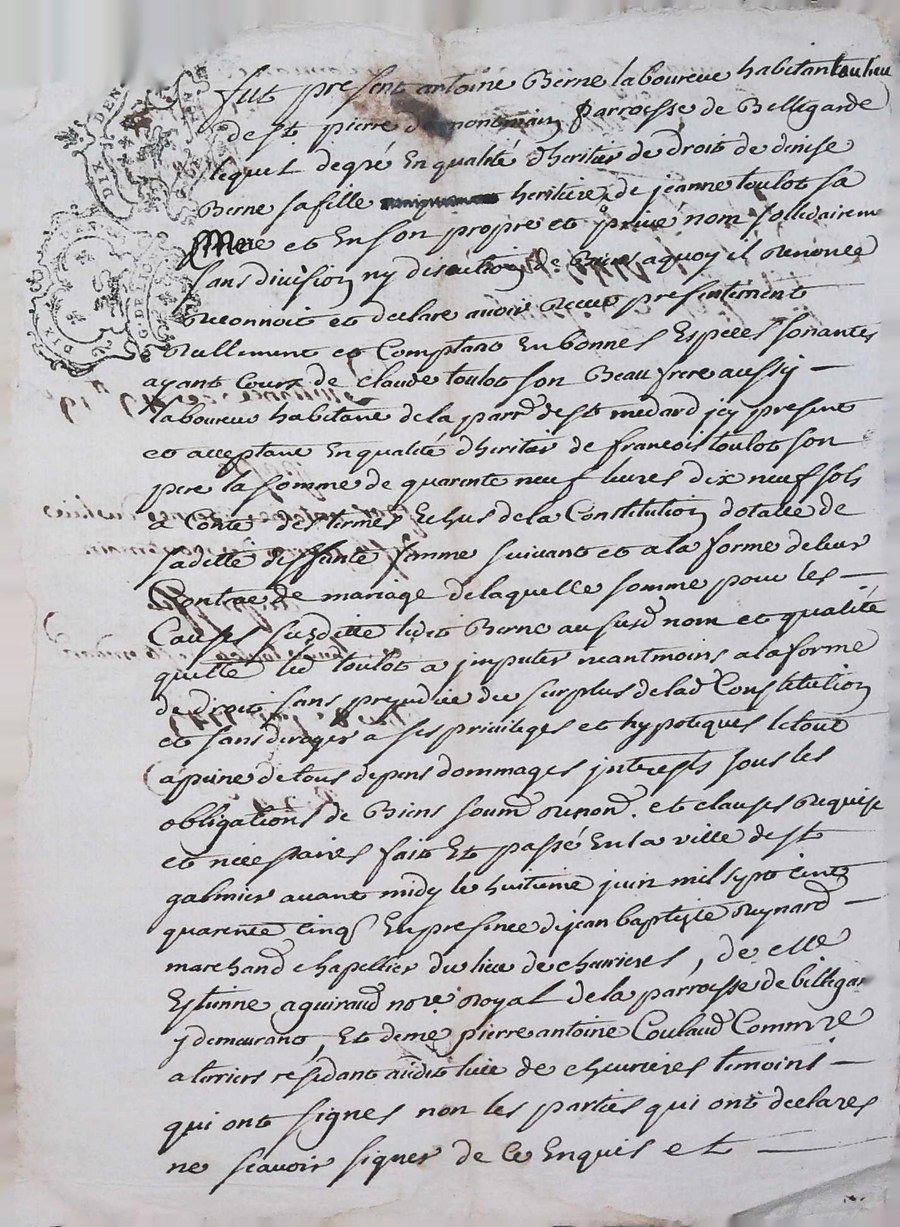 fut present antoine Berne laboureur habitant au lieu
de st pierre de montmain parroesse de Bellegarde
lequel degré En qualité d'heritier de droit de denise
Berne sa fille heritiere de jeanne toulot sa
Mere et En son propre et privé nom sollidairemt
sans division ny discution de Biens a quoy il Renonce
Reconnoit et declare avoir Receu presentement
Reellement et Comptant En bonnes Especes sonantes
ayant Cours de claude toulot son Beaufrere aussy
laboureur habitant de la parr.e de st medard jcy present
et acceptant En qualité d'heritier de francois toulot son
pere la somme de quarente neuf livres dix neuf sols
a Conte des termes Echus de la Constitution dotalle de
sa ditte deffunte femme suivant et a la forme de leur
Contrat de mariage de laquelle somme pour les
Causes susditte ledt Berne au susd nom et qualité
quitte led toulot a jmputer neantmoins a la forme
de droit sans prejudice du surplus de lad Constitution
et sans deroger a ses privileges et hypoteques le tout
a peine de tous depens dommages jnterests sous les
obligations de Biens soumd Renond. et clauses Requise
et necessaires fait Et passé En la ville de st
galmier avant midy le huitieme juin mil sept cents
quarente cinq En presence de jean baptiste Reynard
marchand chapellier du lieu de chevrieres, de Me
Estienne aguiraud no.re Royal de la parroesse de bellegar
y demeurant, Et de me pierre antoine Coulaud Commre
a terriers residant audit lieu de chevrieres temoins
qui ont signes non les parties qui ont declares
ne scavoir signer de Ce Enquis et